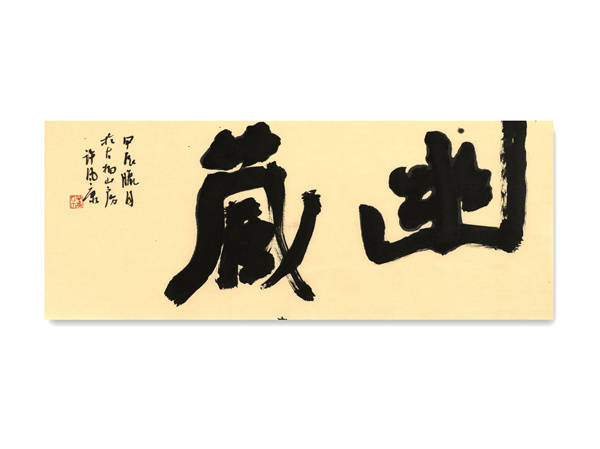 幽藏
甲辰臘月
於古山房
許康